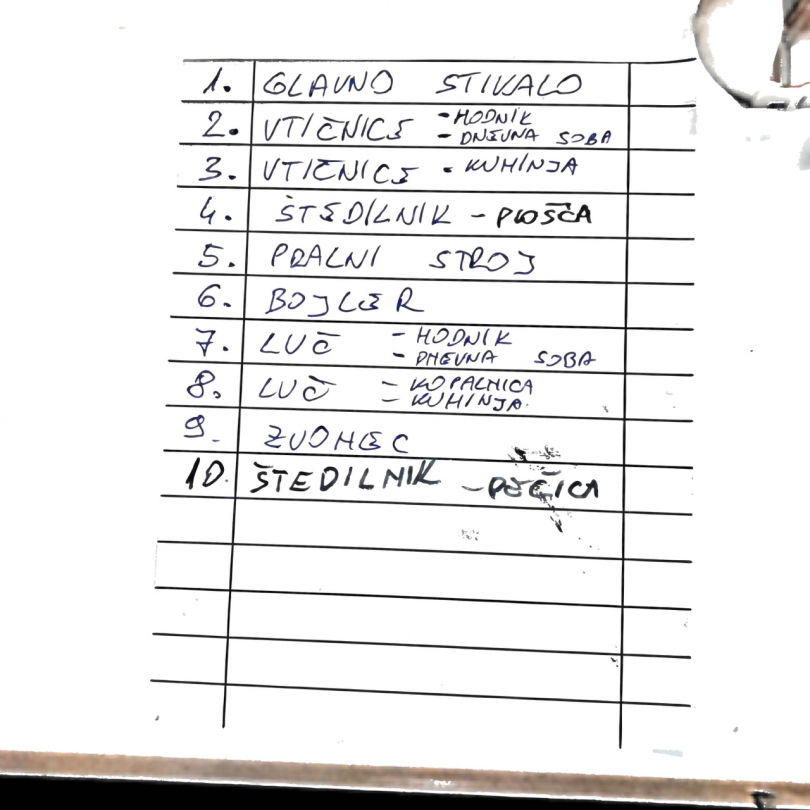 1. GLAVNO STIKALO
2. VTIČNICE - HODNIK
- DNEVNA SOBA
3. VTIČNICE - KUHINJA
4. ŠTEDILNIK - PLOŠČA
5. PRALNI STROJ
6. BOJLER
7. LUČ - HODNIK
- DNEVNA SOBA
8. LUČ - KOPALNICA
- KUHINJA.
9. ZVONEC
10. ŠTEDILNIK - PEČICA